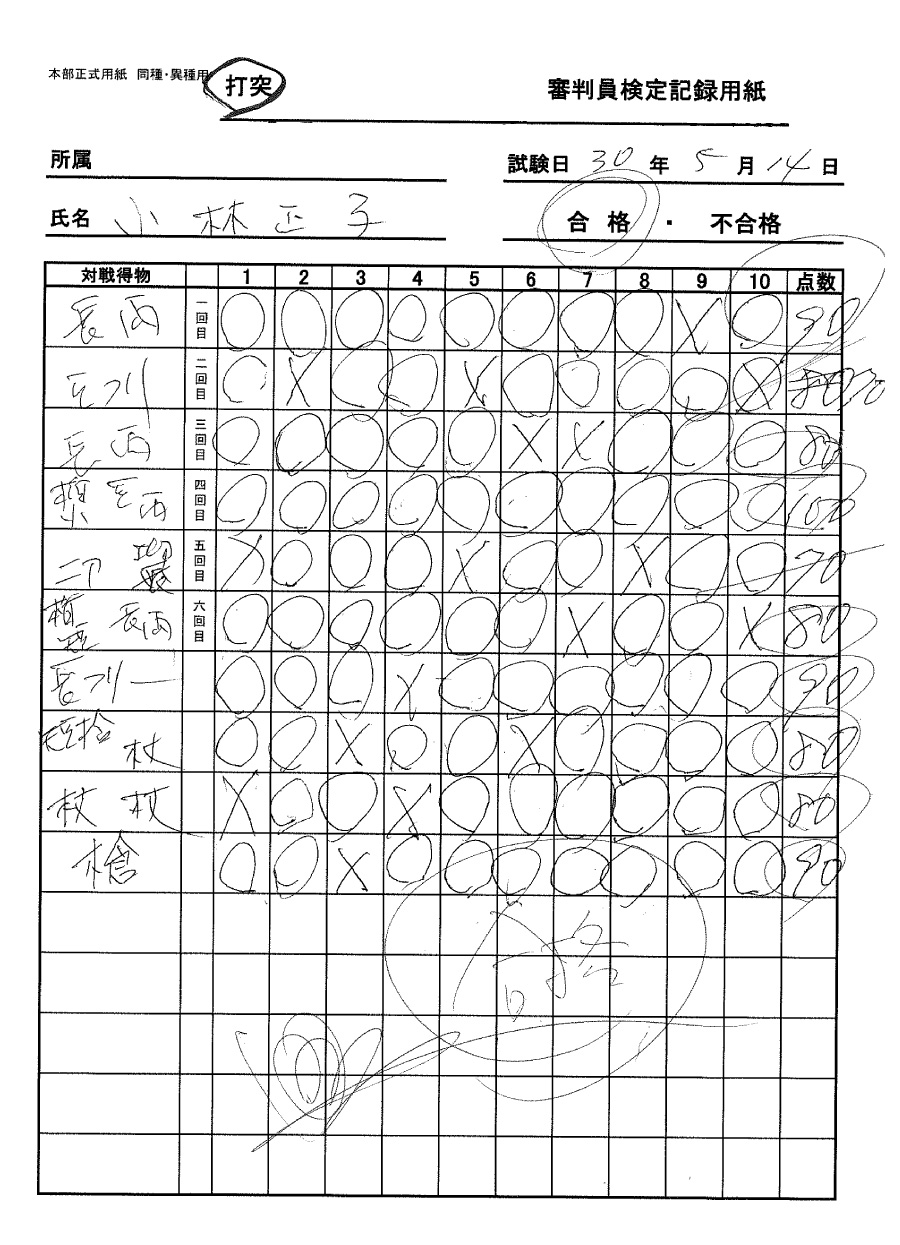 本部正式用紙 同種・異種用 打突
審判員検定記録用紙
所属
試験日 30 年 5 月 14 日
氏名 小林正子
合格 ・ 不合格
対戦得物 1 2 3 4 5 6 7 8 9 10 点数
長両 一回目 ○ ○ ○ ○ ○ ○ ○ ○ × ○ 90
二回目 ○ × ○ ○ × ○ ○ ○ ○ × 80 70
長両 三回目 ○ ○ ○ ○ ○ × × ○ ○ ○ 80
長両 四回目 ○ ○ ○ ○ ○ ○ ○ ○ ○ ○ 100
五回目 × ○ ○ ○ × ○ ○ × ○ ○ 70
長両 六回目 ○ ○ ○ ○ ○ ○ × ○ ○ × 80
○ ○ ○ × ○ ○ ○ ○ ○ ○ 90
短槍 杖 ○ ○ × ○ ○ × ○ ○ ○ ○ 80
杖 杖 × ○ ○ × ○ ○ ○ ○ ○ ○ 80
槍 ○ ○ × ○ ○ ○ ○ ○ ○ ○ 90
合格